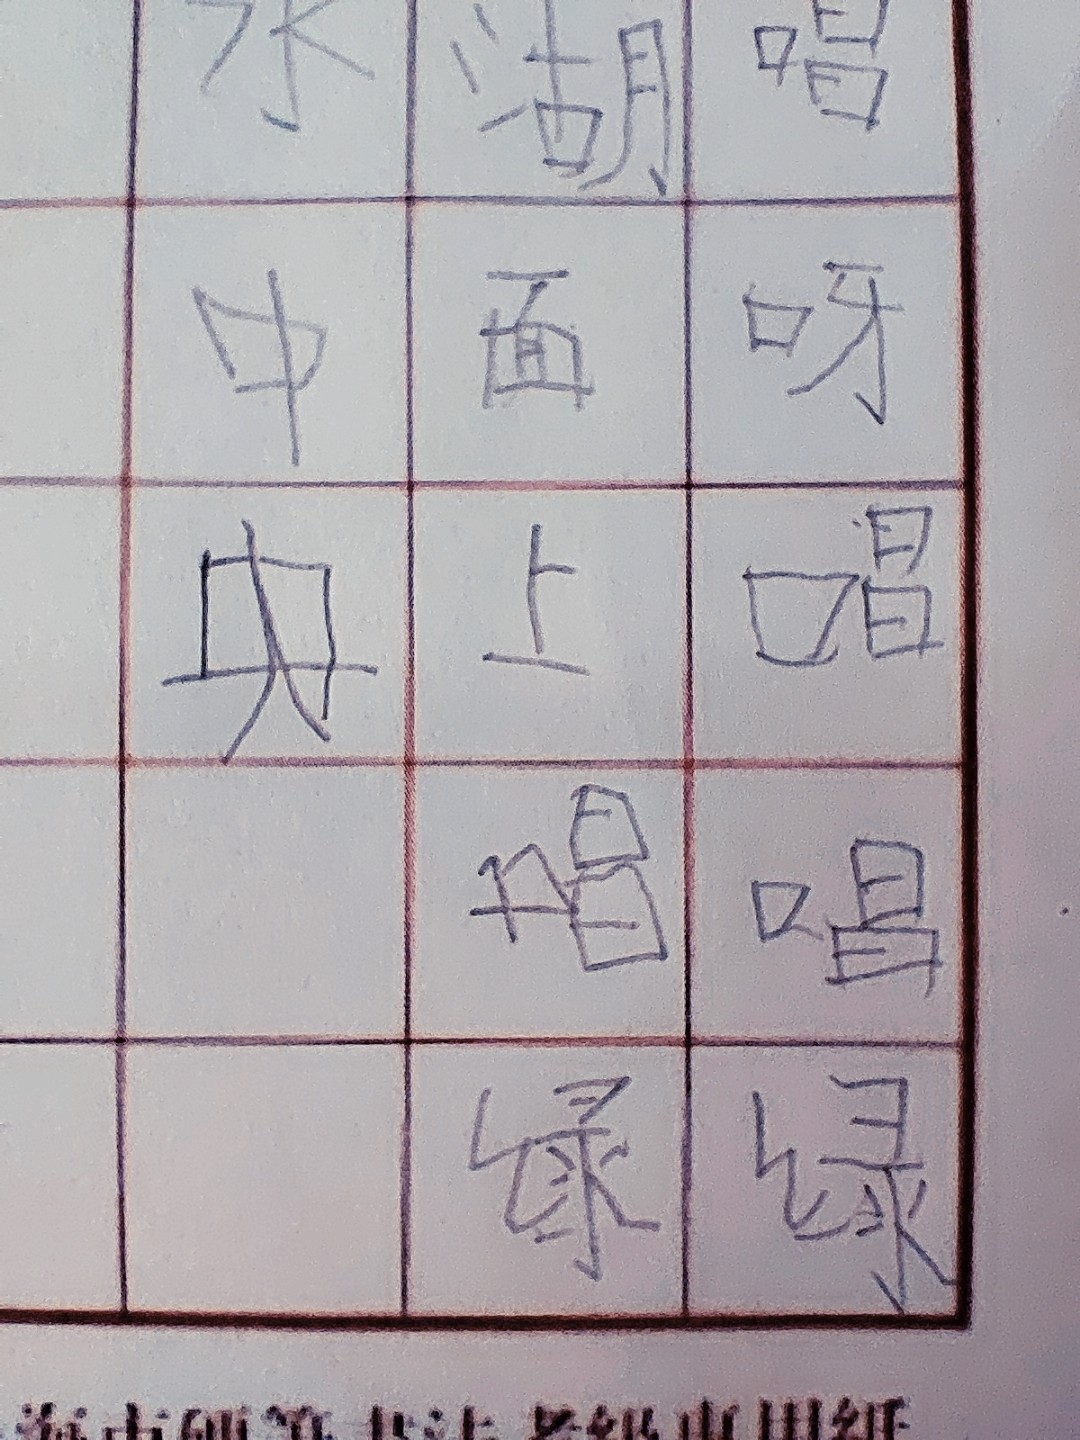 唱呀唱唱绿
湖面上唱绿
水中央
海市硬笔书法考级专用纸